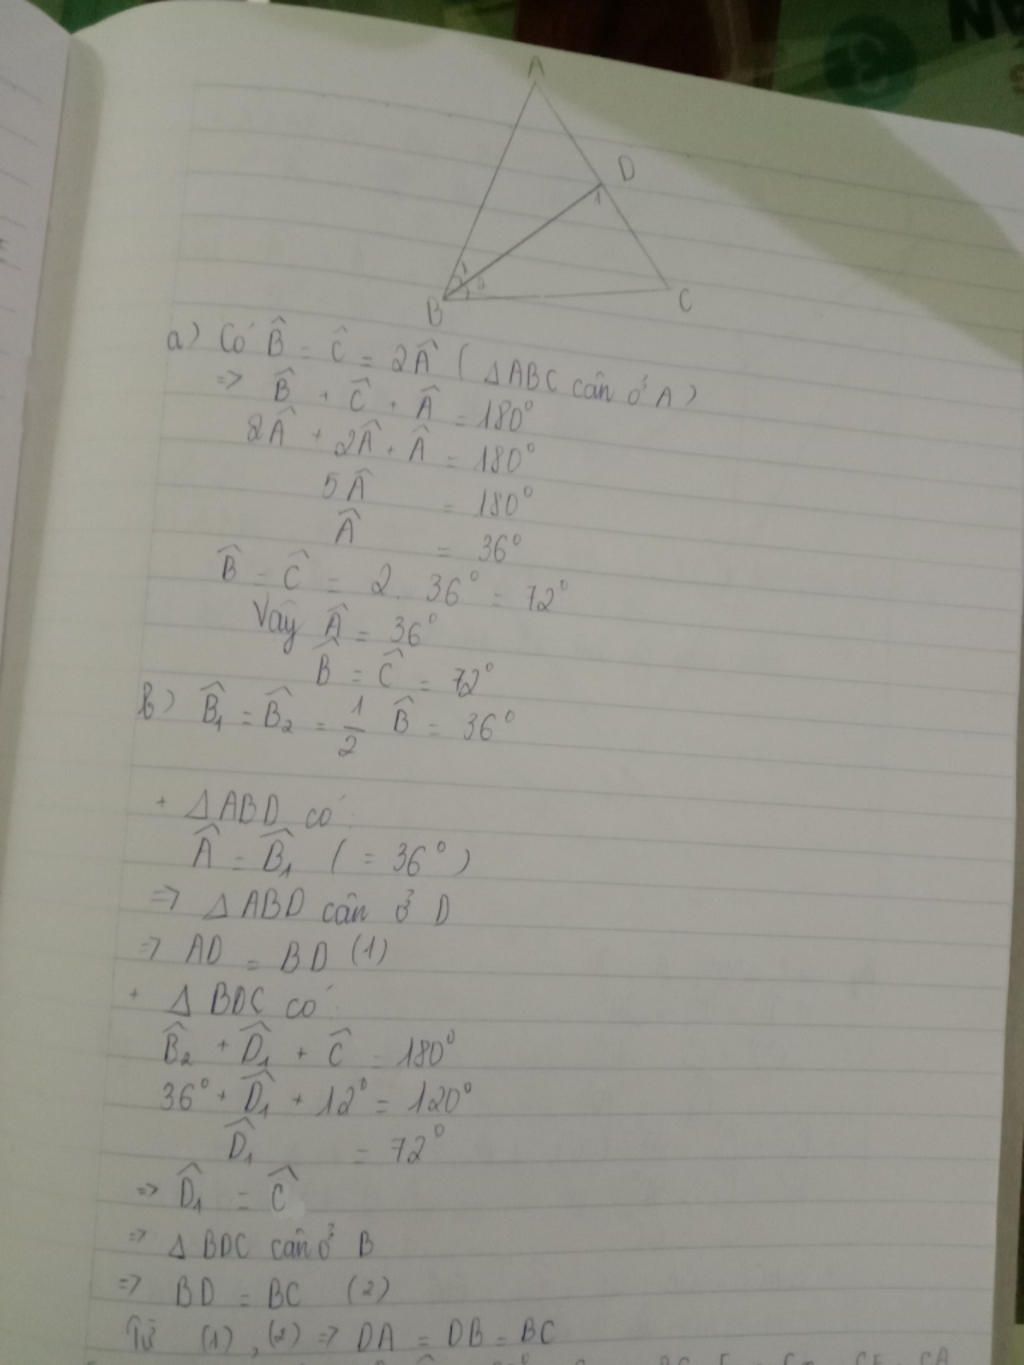 A
D
1
1
2
B
C
a) Có B̂ = Ĉ = 2Â ( ΔABC cân ở A)
=> B̂ + Ĉ + Â = 180°
2Â + 2Â + Â = 180°
5Â = 180°
Â = 36°
B̂ = Ĉ = 2. 36° = 72°
Vây Â = 36°
B̂ = Ĉ = 72°
b) B̂₁ = B̂₂ = 1/2 B̂ = 36°
+ ΔABD có:
Â = B̂₁ ( = 36°)
=> ΔABD cân ở D
=> AD = BD (1)
+ Δ BDC có:
B̂₂ + D̂₁ + Ĉ = 180°
36° + D̂₁ + 12° = 120°
D̂₁ = 72°
=> D̂₁ = Ĉ
=> Δ BDC cân ở B
=> BD = BC (2)
Từ (1), (2) => DA = DB = BC